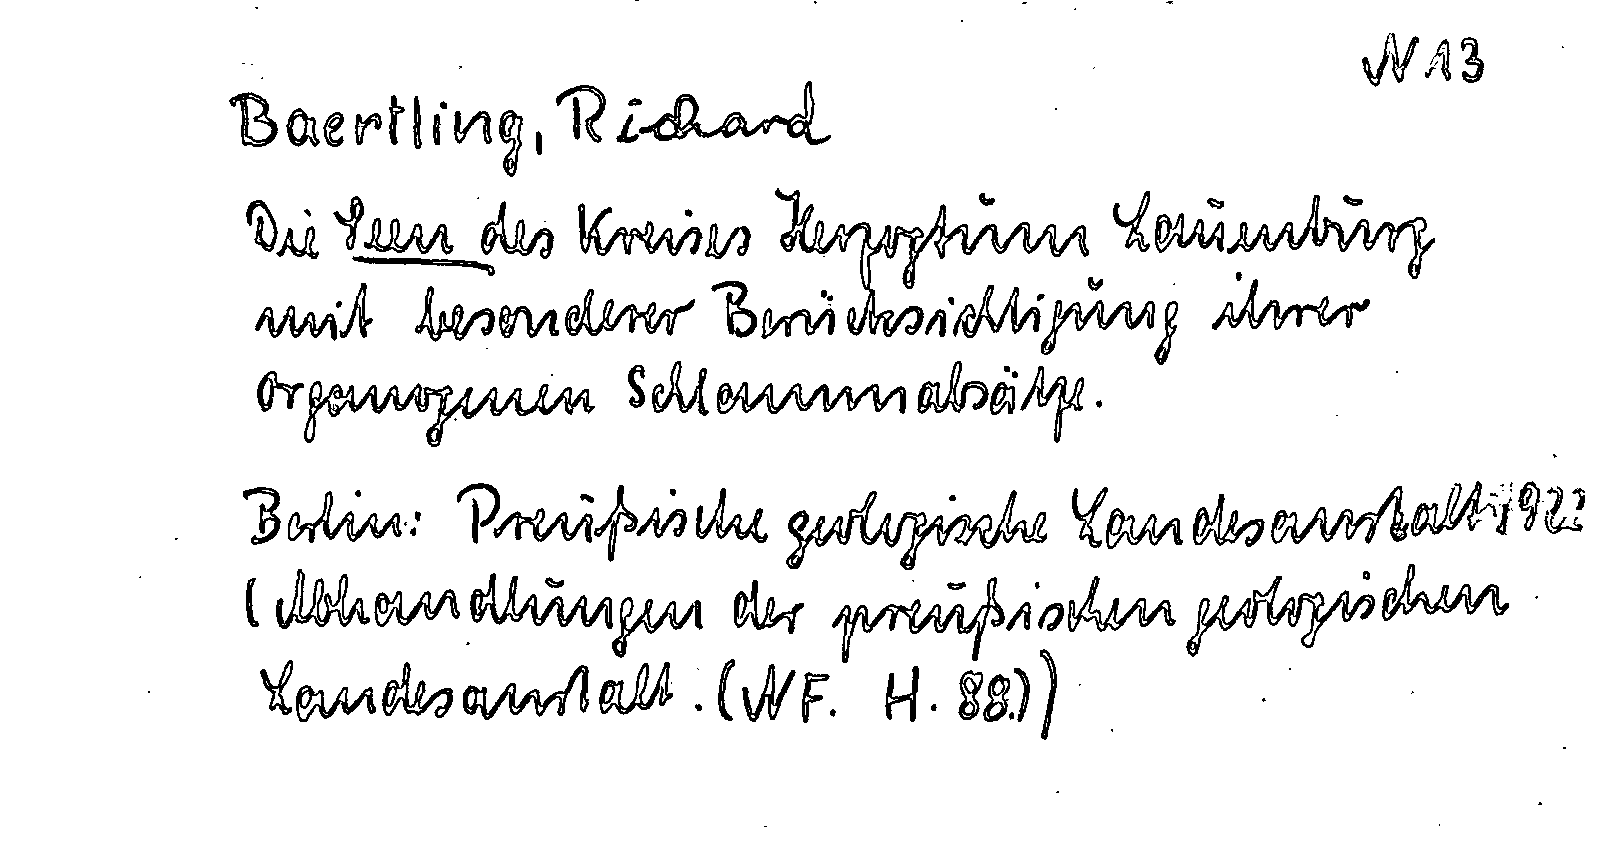 N 13
Baertling, Richard
Die Seen des Kreises Herzogtum Lauenburg
mit besonderer Berücksichtigung ihrer
organogenen Schlammabsätze.
Berlin: Preußische geologische Landesanstalt 1922
(Abhandlungen der preußischen geologischen
Landesanstalt. (NF. H. 88.))